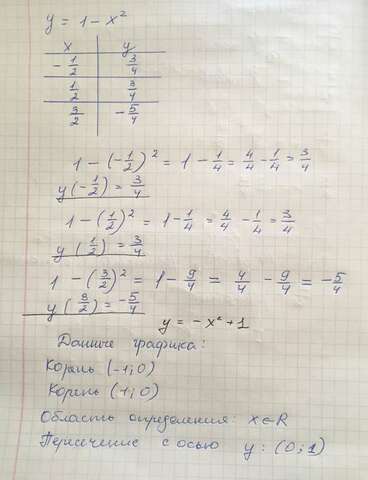 y = 1 - x²
x y
-1/2 3/4
1/2 3/4
3/2 -5/4
1 - (-1/2)² = 1 - 1/4 = 4/4 - 1/4 = 3/4
y(-1/2) = 3/4
1 - (1/2)² = 1 - 1/4 = 4/4 - 1/4 = 3/4
y(1/2) = 3/4
1 - (3/2)² = 1 - 9/4 = 4/4 - 9/4 = -5/4
y(3/2) = -5/4
y = -x² + 1
Данные графика:
Корень (-1;0)
Корень (1;0)
Область определения: x∈R
Пересечение с осью y: (0;1)